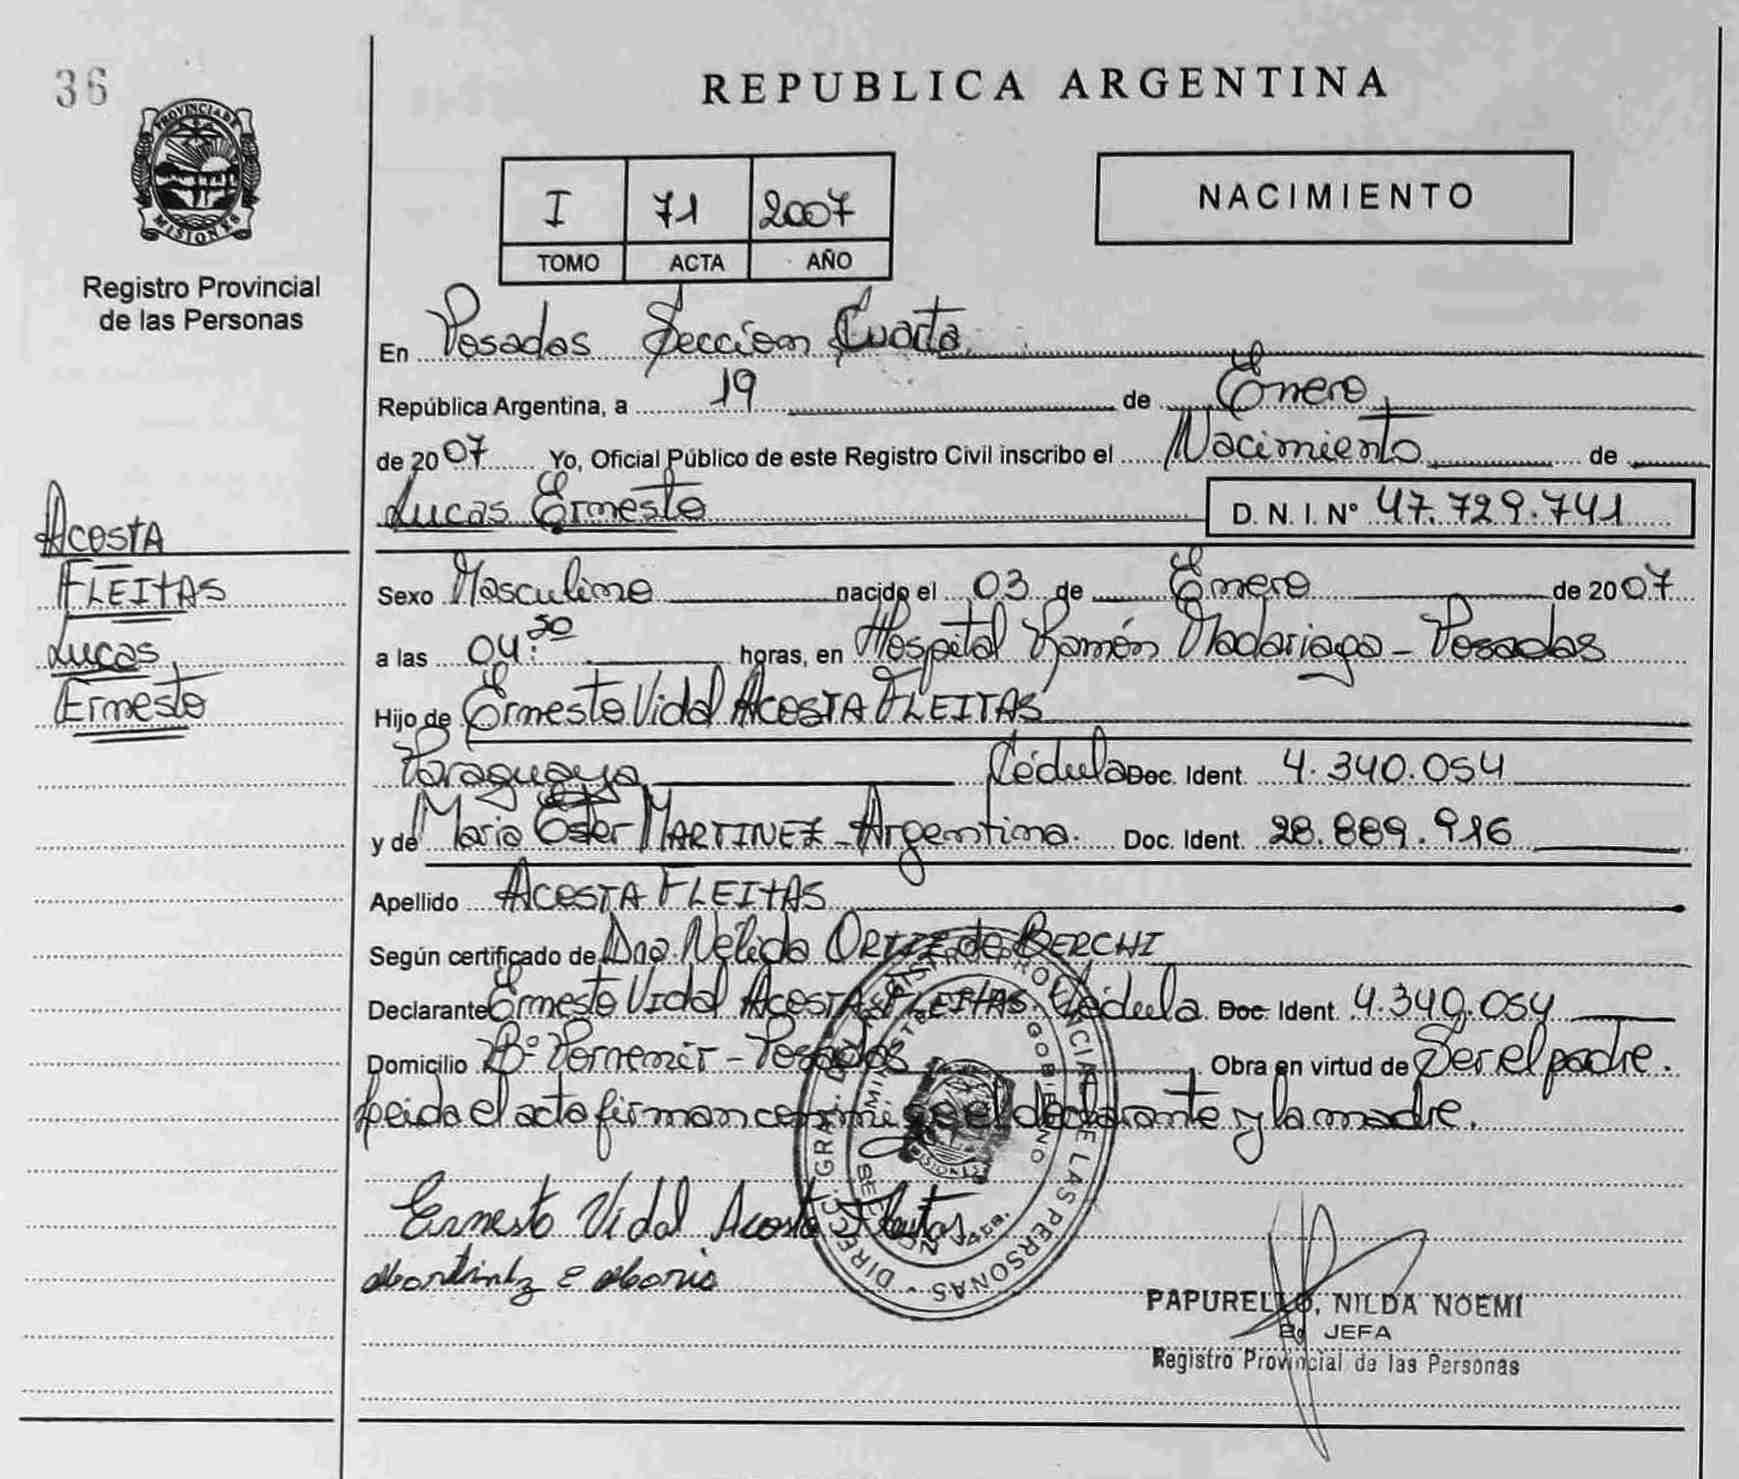 36
PROVINCIA DE
MISIONES
Registro Provincial
de las Personas
REPUBLICA ARGENTINA
I 71 2007
TOMO ACTA AÑO
NACIMIENTO
En Posadas Sección Cuarta
República Argentina, a 19 de Enero
de 2007 Yo, Oficial Público de este Registro Civil inscribo el Nacimiento de
Lucas Ernesto D. N. I. Nº 47.729.741
Acosta
FLEITAS
Lucas
Ernesto
Sexo Masculino nacido el 03 de Enero de 2007
a las 04:30 horas, en Hospital Ramón Madariaga - Posadas
Hijo de Ernesto Vidal ACOSTA FLEITAS
Paraguaya Cédula Doc. Ident. 4.340.054
y de Maria Ester MARTINEZ - Argentina. Doc. Ident. 28.889.916
Apellido ACOSTA FLEITAS
Según certificado de Dra. Nélida ORTIZ de BERCHI
Declarante Ernesto Vidal ACOSTA FLEITAS Cédula Doc. Ident. 4.340.054
Domicilio Bº Porvenir - Posadas Obra en virtud de Ser el padre.
Leida el acta firman conmigo el declarante y la madre.
Ernesto Vidal Acosta Fleitas
Martinez E Maria
DIRECC. GRAL. DEL REGISTRO PROVINCIAL DE LAS PERSONAS
GOBIERNO
4ta.
PAPURELLO, NILDA NOEMI
JEFA
Registro Provincial de las Personas